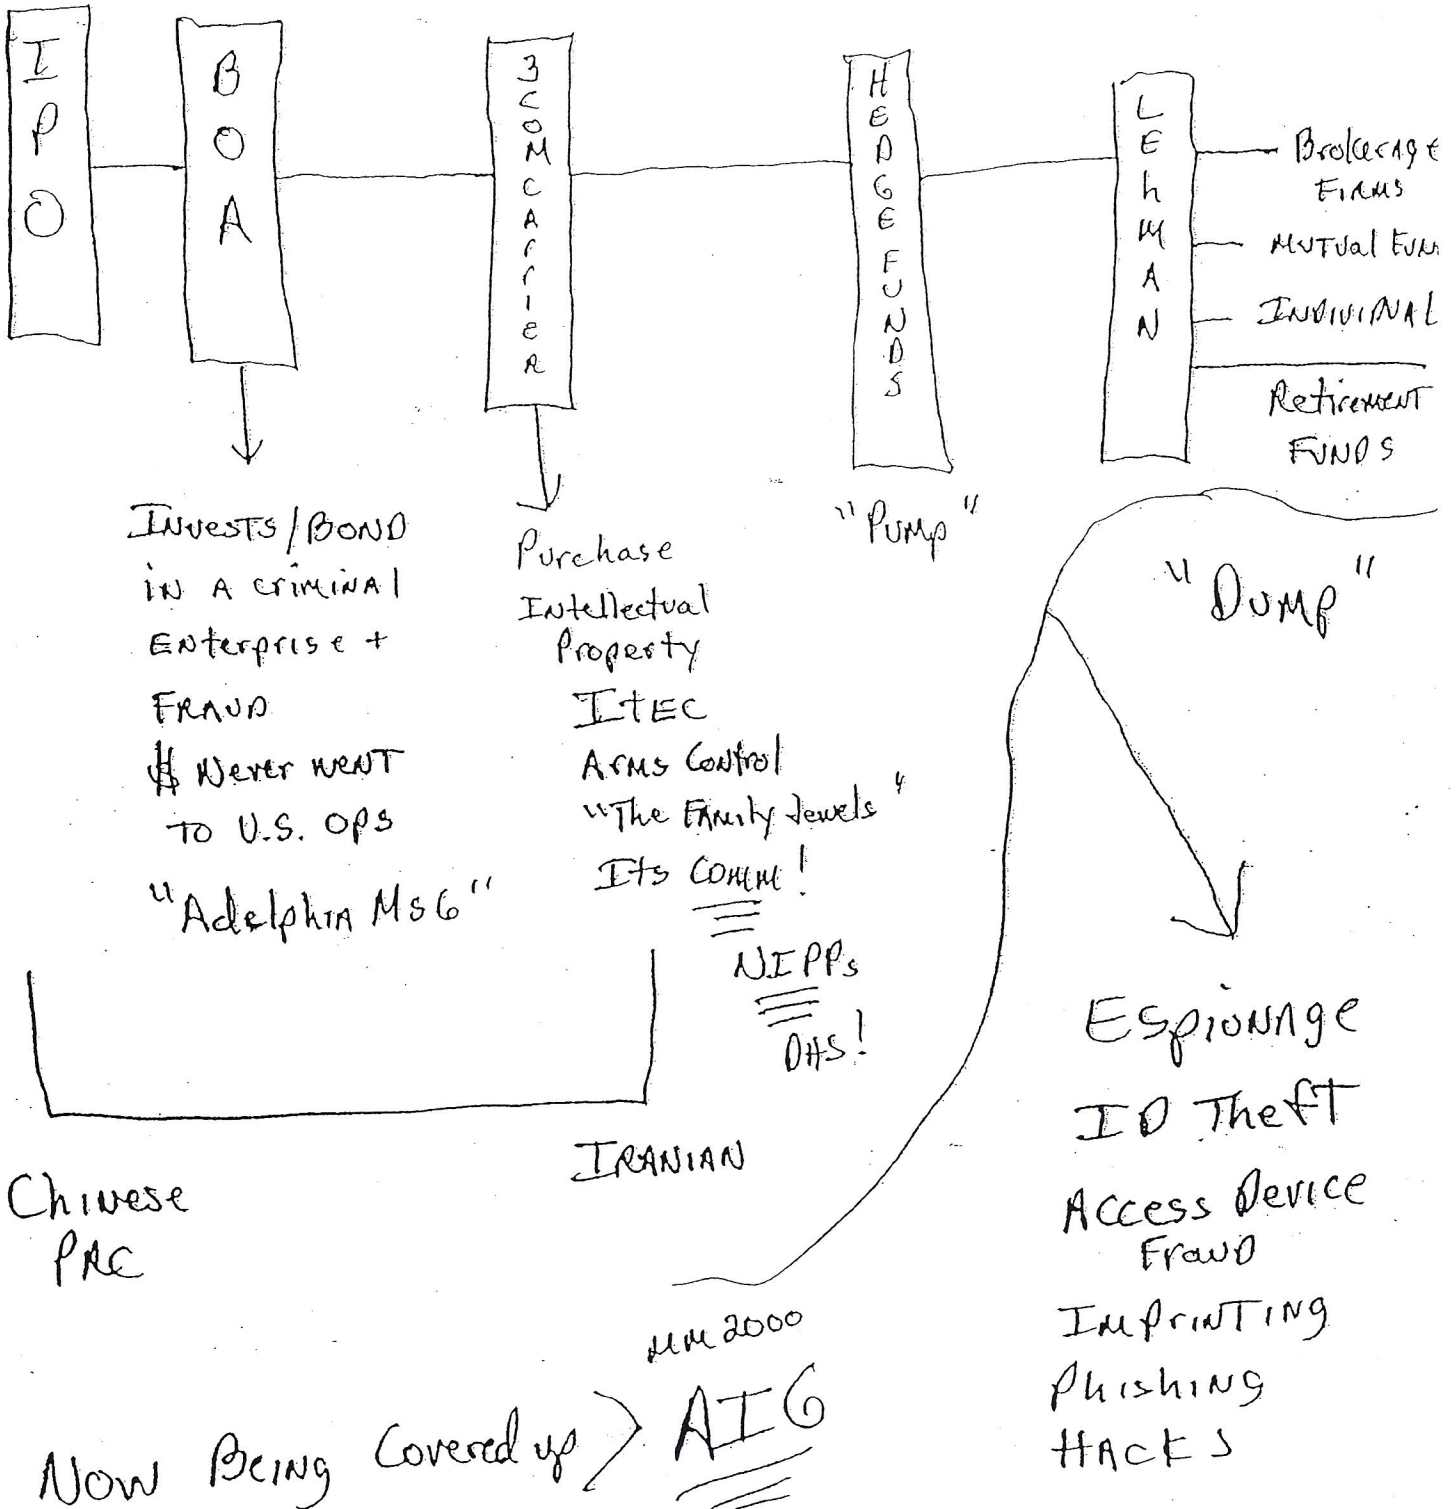 IPO
BOA
3COMCARRIER
HEDGEFUNDS
LEhMAN
Brokerage
FIRMS
MUTUAL FUN
INDIVIDUAL
Retirement
FUNDS
INVESTS/BOND
IN A CRIMINAl
ENterprise +
FRAUD
$ Never WENT
TO U.S. OPS
"Adelphia MSG"
Purchase
INtellectual
Property
ITEC
ARMS Control
"The FAMily Jewels"
Its COMM!
NIPPs
DHS!
"PUMP"
"DUMP"
Espionage
ID Theft
Access Device
Fraud
IMPrINTING
Phishing
HACKS
IRANIAN
Chinese
PRC
MM2000
Now Being Covered up > AIG